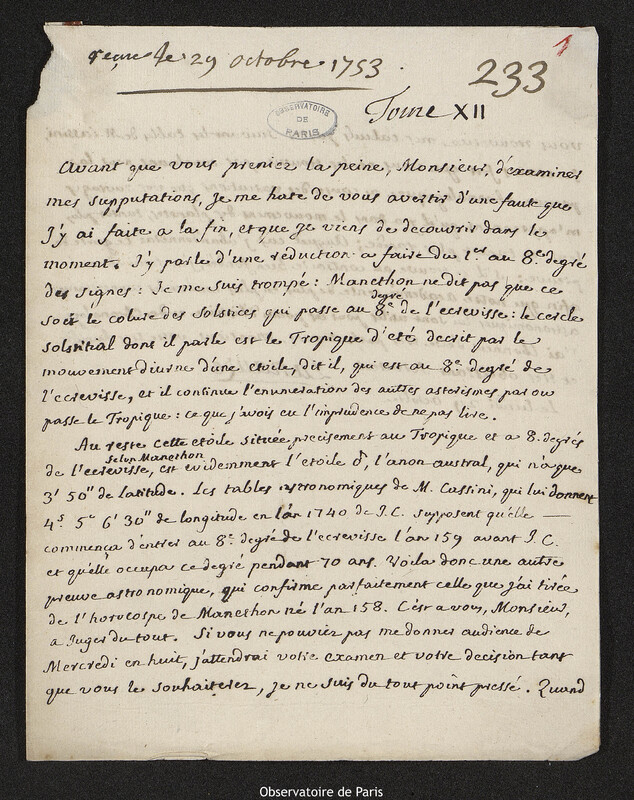 reçue le 29 octobre 1753.
1
233
OBSERVATOIRE
DE
PARIS
Tome XII
Avant que vous preniez la peine, Monsieur, d'examiner
mes supputations, je me hate de vous avertir d'une faute que
j'y ai faite a la fin, et que je viens de decouvrir dans le
moment. J'y parle d'une réduction a faire du 1.er au 8.e degré
des signes: Je me suis trompé: Manethon ne dit pas que ce
soit le colure des solstices qui passe au 8.e degré de l'ecrevisse: le cercle
solstitial dont il parle est le Tropique d'eté decrit par le
mouvement diurne d'une etoile, dit il, qui est au 8.e degré de
l'ecrevisse, et il continue l'enumeration des autres asterismes par ou
passe le Tropique: ce que j'avois eu l'imprudence de ne pas lire.
Au reste cette etoile située precisement au Tropique et a 8. degrés
de l'ecrevisse, selon Manethon, est evidemment l'étoile δ, l'anon austral, qui n'a que
3' 50" de latitude. Les tables astronomiques de M. Cassini, qui lui donnent
4.s 5.° 6' 30" de longitude en l'an 1740 de J.C. supposent qu'elle
commença d'entrer au 8.e degré de l'ecrevisse l'an 159 avant J.C.
et qu'elle occupa ce degré pendant 70 ans. Voila donc une autre
preuve astronomique, qui confirme parfaitement celle que j'ai tirée
de l'horocospe de Manethon né l'an 158. C'est a vous, Monsieur,
a Juger du tout. Si vous ne pouviez pas me donner audience de
Mercredi en huit, j'attendrai votre examen et votre decision tant
que vous le souhaiterez, je ne suis du tout point pressé. Quand
Observatoire de Paris